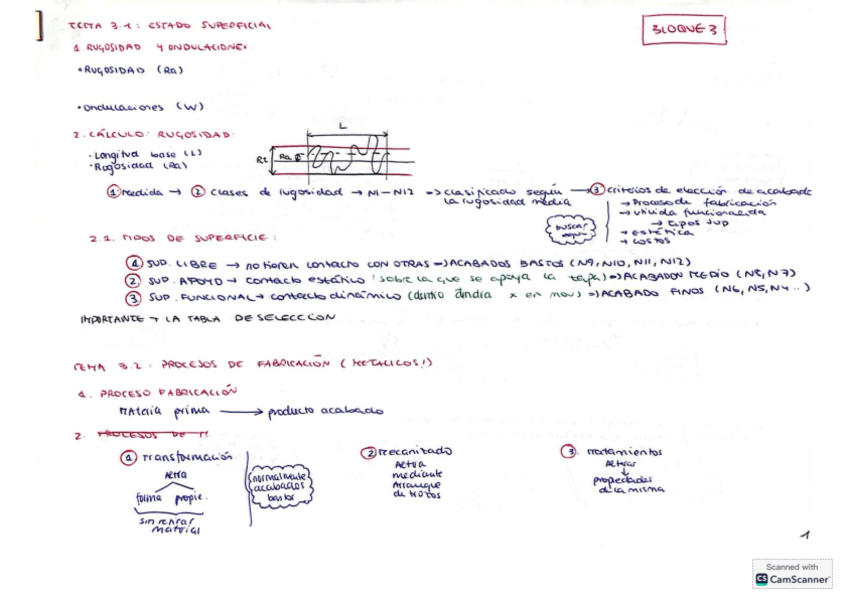 TEMA 3.1: ESTADO SUPERFICIAL
BLOQUE 3
1 RUGOSIDAD Y ONDULACIONES
• RUGOSIDAD (Ra)
• Ondulaciones (W)
2. CÁLCULO: RUGOSIDAD:
• Longitud base (L)
• Rugosidad (Ra)
L
Rt
Ra
① Medida → ② clases de rugosidad → N1-N12 => clasificado según la rugosidad media → ③ criterios de elección de acabado
→ Proceso de fabricación
→ vivida funcionalida
→ tipos sup
→ estética
→ costos
buscar
2.1. TIPOS DE SUPERFICIE:
① SUP. LIBRE → no tienen contacto CON OTRAS => ACABADOS BASTOS (N9, N10, N11, N12)
② SUP. APOYO → contacto estático (sobre la que se apoya la tapa) => ACABADOS MEDIO (N8, N7)
③ SUP. FUNCIONAL → contacto dinámico (dentro x en mov) => ACABADO FINOS (N6, N5, N4..)
IMPORTANTE → LA TABLA DE SELECCCION
TEMA 3.2: PROCESOS DE FABRICACIÓN (METALICOS!)
1. PROCESO FABRICACIÓN
Materia prima → producto acabado
2. PROCESOS DE
① Transformación
Altra
forma propie.
sin restar
material
normalmente
acabados
bastos
② Mecanizado
Altra
mediante
Arranque
de trozos
③. Tratamientos
Alterar
propiedades
de la misma
1
Scanned with
CS CamScanner